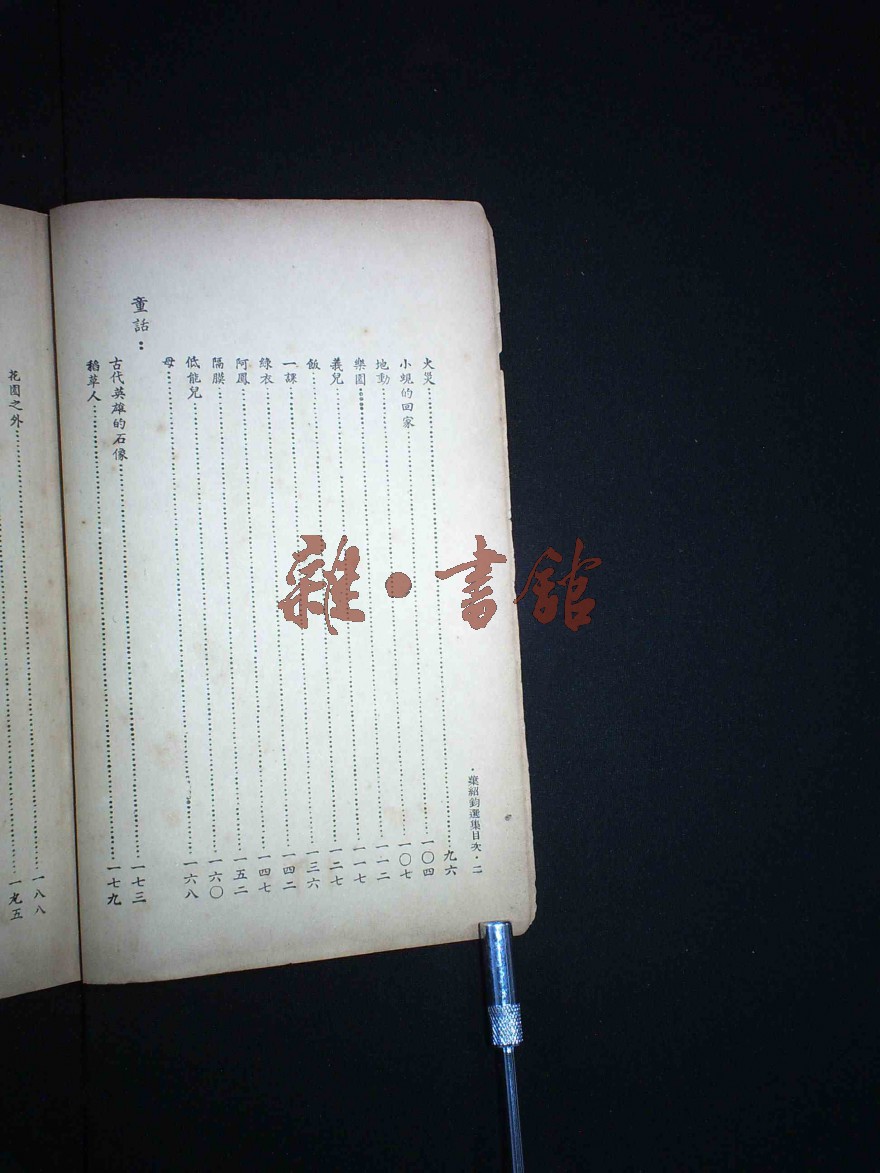 ·葉紹鈞選集目次·二
火災……九六
小蜆的回家……一〇四
地動……一〇七
樂園……一一二
義兒……一一七
飯……一二七
一課……一三六
綠衣……一四二
阿鳳……一四七
隔膜……一五二
低能兒……一六〇
母……一六八
童話：
古代英雄的石像……一七三
稻草人……一七九
花園之外……一八八
……一九五
雜·書館